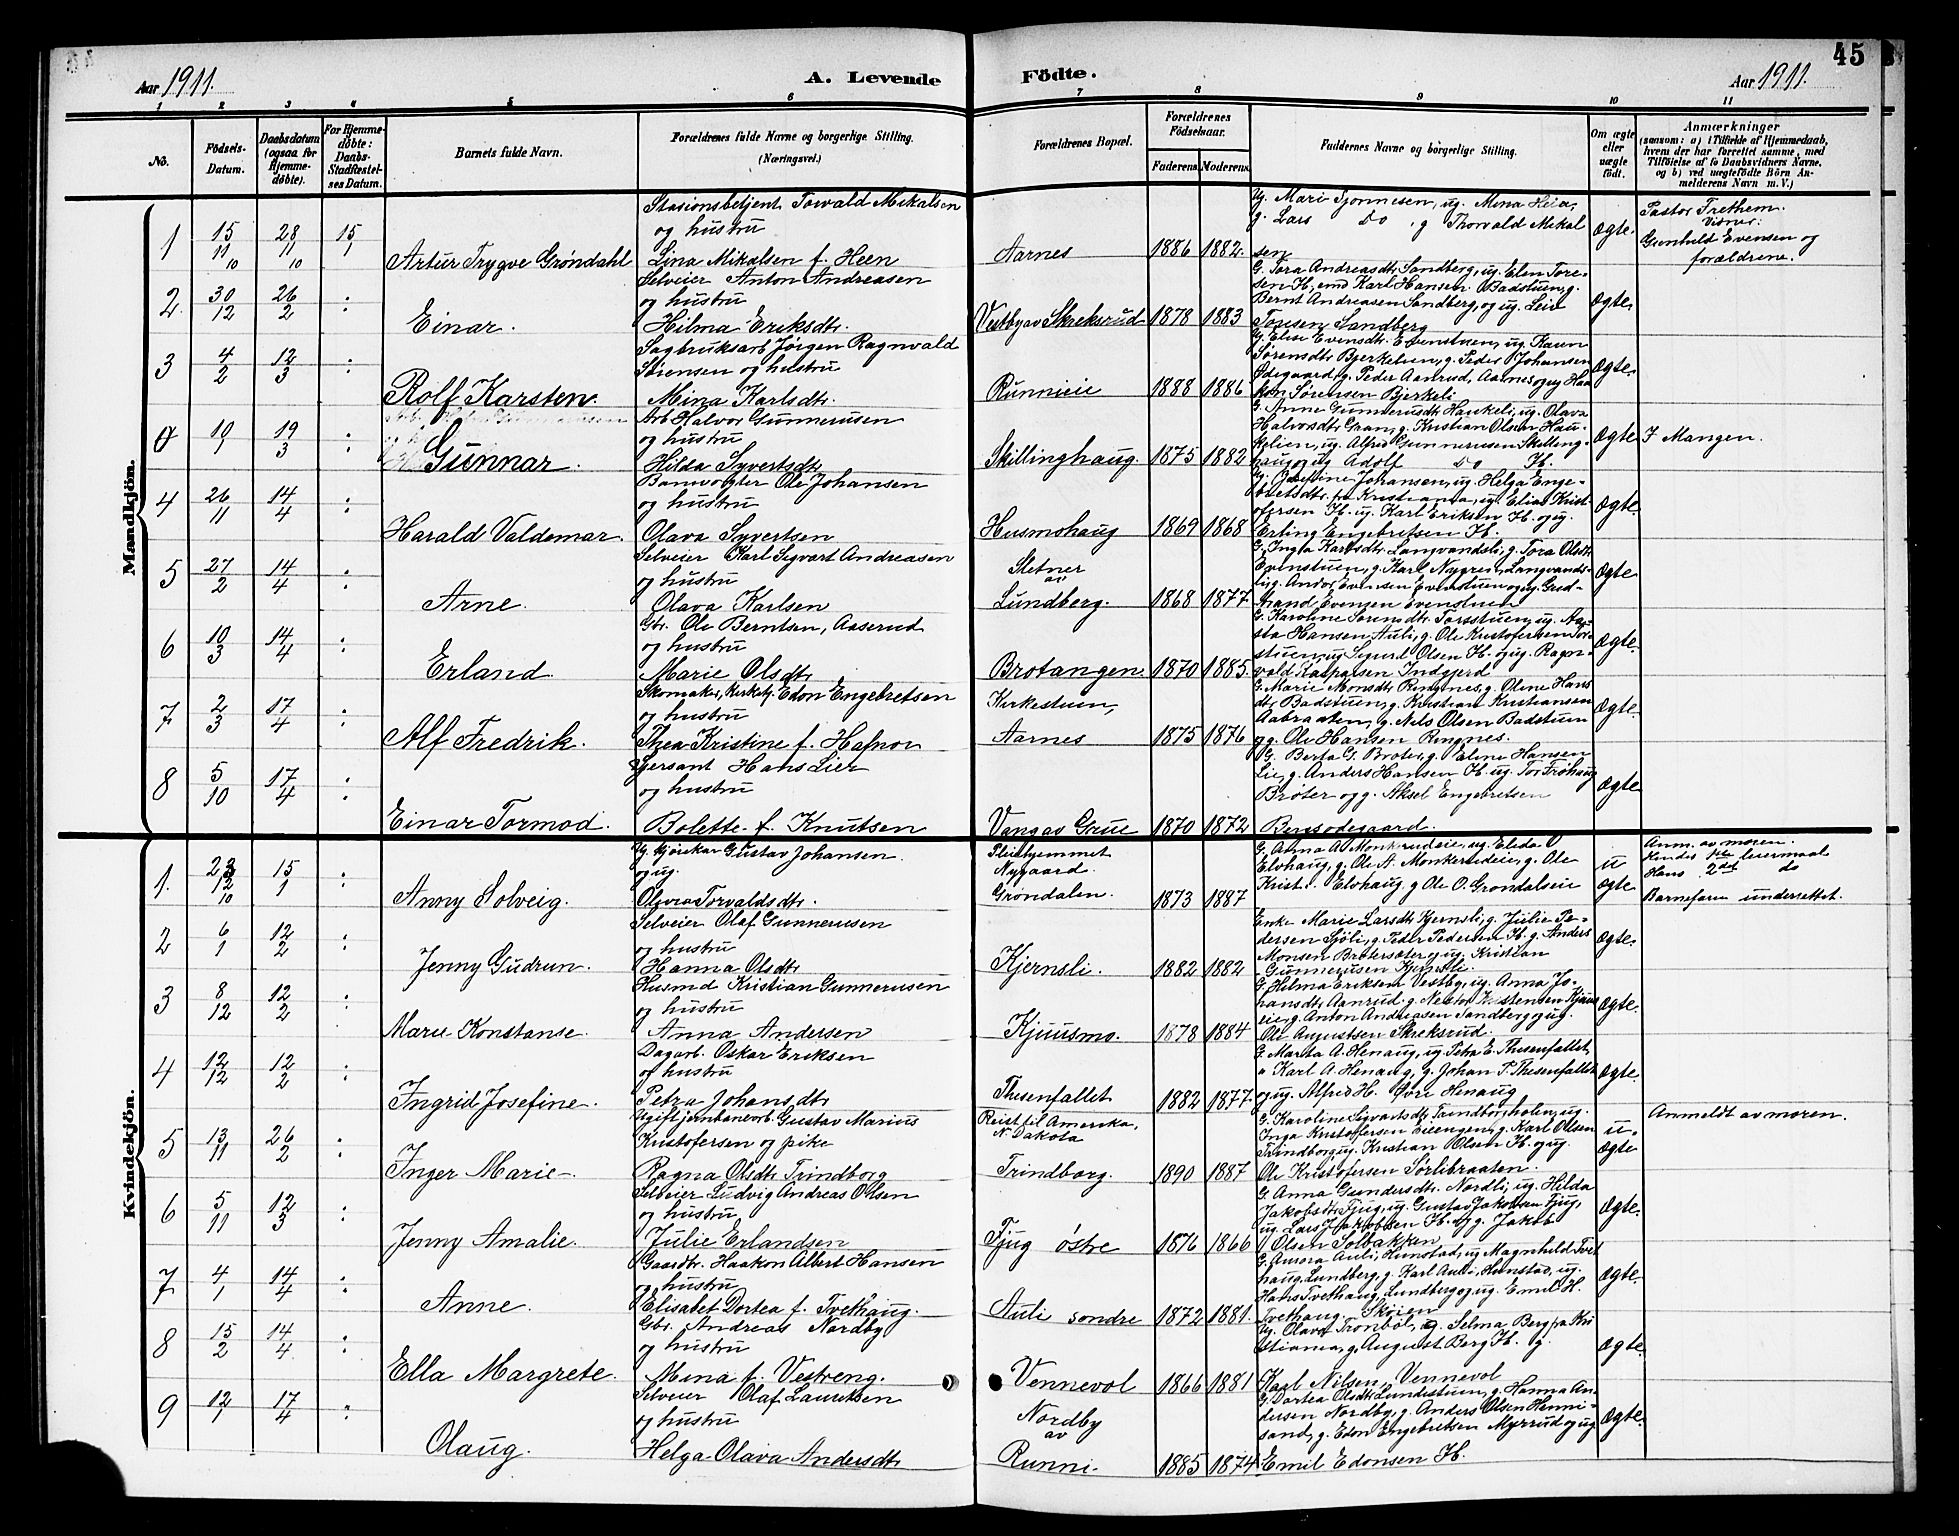 45
Aar 1911.
A. Levende Födte.
Aar 1911.
1 2 3 4 5 6 7 8 9 10 11
No.
Födsels-Datum.
Daabsdatum (ogsaa for Hjemme-döbte).
For Hjemme-döbte: Daabs-Stadfæstel-ses Datum.
Barnets fulde Navn.
Forældrenes fulde Navne og borgerlige Stilling. (Næringsvei.)
Forældrenes Bopæl.
Forældrenes Födselsaar.
Faderens. Moderens.
Faddernes Navne og borgerlige Stilling.
Om ægte eller uægte födt.
Anmærkninger
(saasom: a) i Tilfælde af Hjemmedaab, hvem der har forrettet samme, med Tilföielse af to Daabsvidners Navne, og b) ved uægtefödte Börn Anmelderens Navn m. V.)
Mandkjön.
1 15/11 10 28/11 10 15/1 Artur Trygve Grøndahl
Stasionsbetjent Torvald Mikalsen
og hustru
Lina Mikalsen f. Heen
Aarnes 1886 1882.
g. Lars Do, g Thorvald Mikalsen
Ægte.
Pastor Trethem.
Gunhild Evensen og
forældrene.
2 30/12 26/2 Einar.
Selveier Anton Andreasen
og hustru
Hilma Eriksdtr.
Vestby av Skreksrud 1878 1883
G. Tora Andreasdtr. Sandberg, ug. Elen Tore-
sen H, emd Karl Hansen Badstuen, g.
Bernt Andreasen Sandberg, og ug. Leiv
Toresen Sandberg
Ægte.
3 4/2 12/3 Rolf Karsten.
Sagbruksarb Jörgen Ragnvald
Sörensen og hustru
Mina Karlsdtr.
Runnieie 1888 1886
G. Elise Evensdtr. Evenstuen, ug. Karen
Sørensdtr Bjerkelien, g. Peder Johansen
Ødegaard, g. Peder Aanrud, Aarnes og ug Haa
kon Sørensen Bjerkeli
Ægte.
0 10/1 19/3 Gunnar.
Arb Halvor Gunnerusen
og hustru
Hilda Syvertsdtr
Skillinghaug. 1875 1882
G. Anne Gunnerusdtr Haukeli, ug. Olava
Halvorsdtr Gran, g. Kristian Olsen Hau-
kelien, ug. Alfred Gunnerusen Skilling-
haug og ug Adolf Do H.
Ægte
I Mangen.
4 26/11 14/4 Harald Valdemar.
Banevogter Ole Johansen
og hustru
Olava Syvertsen
Husmohaug 1869 1868
Ug. Josefine Johansen, ug. Helga Enge-
bretsdtr. fra Kristiania, ug. Elias Krist
ofersen H. ug. Karl Eriksen H. og ug.
Erling Engebretsen H.
Ægte.
5 27/2 14/4 Arne.
Selveier Karl Sigvart Andreasen
og hustru
Olava Karlsen
Sletner
av
Lundberg. 1868 1877.
Evenstuen, g. Karl Nygren, Langvands-
li, g. Andor Evensen Evenstuen og ug. Gud-
brand Evensen Evenstuen
Ægte
6 10/3 14/4 Erland
Gbr. Ole Berntsen, Aaserud
og hustru
Marie Olsdtr
Brotangen. 1870 1885.
sta Hansen Auli, g. Ole Kristofersen Tor-
stuen, ug Sigurd Olsen H. og ug. Ragn-
vald Kaspersen Indgjerd
Ægte.
7 2/3 17/4 Alf Fredrik.
Skomaker, Kirketj. Edon Engebretsen
og hustru
Thea Kristine f. Hafnor
Kirkestuen,
Aarnes 1875 1876
G. Marie Monsdtr Ringnes, g. Oline Hans
dtr Badstuen, g. Kristian Kristiansen
Aabraaten, g. Nils Olsen Badstuen
og g. Ole Hansen Ringnes.
Ægte.
8 5/10 17/4 Einar Tormod.
Sersant Hans Lier
og hustru
Bolette f. Knutsen
Vang av Grue 1870 1872
G. Berta G. Brøter, g. Eline Hansen
Lie, g. Anders Hansen H. ug. Tor Frøhaug
Brøter og g. Aksel Engebretsen
Bergsødegaard.
Ægte
Kvindekjön.
1. 23/12 10 15/1 Anny Solveig.
Ug. kjørekar Gustav Johansen.
og ug.
Olovia Torvaldsdtr.
Pleiehjemmet
Nygaard.
Grøndalen. 1873 1887
G. Anna A Monkerudeie, ug. Elida O
Elvhaug, g. Ole A. Monkerudeie, g. Ole
Krist. Elvhaug. g Ole O. Grøndalseie
u ægte
Anm. av moren.
Hendes 1ste leiermaal
Hans 2det do
Barnefaren underrettet.
2 6/1 12/2 Jenny Gudrun.
Selveier Olaf Gunnerusen
og hustru
Hanna Olsdtr
Kjernsli. 1882 1882
Enke Marie Larsdtr Kjernsli, g. Julie Pe-
dersen Sjöli, g. Peder Pedersen H. g. Anders
Monsen Brøtersæter og ug. Kristian
Gunnerusen Kjernsli.
Ægte.
3 8/12 12/2 Marie Konstanse.
Husmd Kristian Gunnerusen
og hustru
Anna Andersen
Kjuusmo. 1878 1884
G. Hilma Eriksen Vestby, ug. Anna Jo-
hansdtr Aanrud. g. Nestor Kristensen Kjuus
eie, g. Anton Andreasen Sandberg og ug.
Ole Augustsen Skreksrud.
Ægte.
4 12/12 12/2 Ingrid Josefine.
Dagarb. Oskar Eriksen
og hustru
Petra Johansdtr
Thesenfallet 1882 1877.
G. Marta A. Henaug, ug Petra E. Thesenfallet,
" Karl A. Henaug, g. Johan P. Thesenfallet
og ug. Alfred H. Øvre Henaug
Ægte.
5 13/11 26/2 Inger Marie
Ugift jernbanearb. Gustav Marius
Kristofersen og pike
Ragna Olsdtr Trindborg
Reist til Amerika,
N. Dakota
Trindborg. 1890 1887
Inga Kristoffersen Eisengen, g. Karl Olsen
Trindborg, ug. Kristian Olsen H. og ug.
Ole Kristofersen Sørlibraaten.
u. ægte
Anmeldt av moren.
6 5/11 12/3 Jenny Amalie.
Selveier Ludvig Andreas Olsen
og hustru
Julie Erlandsen
Fjug østre 1876 1866
G. Anna Gundersdtr. Nordli, ug. Hilda
Jakobsdtr Fjug, ug. Gustav Jakobsen Fjug,
ug. Lars Jakobsen H. og g. Jakob
Olsen Solbakken
Ægte.
7 4/1 14/4 Anne.
Gaardbr. Haakon Albert Hansen
og hustru
Elisabet Dortea f. Tvethaug.
Auli søndre 1872 1881.
G. Aurora Auli, Hunstad, ug Magnhild Tvet
haug, Lundberg, g. Karl Auli, Hunstad, ug.
Hans Tvethaug, Lundberg og ug. Emil H.
Tvethaug. Skøien
Ægte.
8 15/2 14/4 Ella Margrete.
Gbr. Andreas Nordby
og hustru
Mina f. Vestreng.
Vennevol 1866 1881
Ug. Olava Trønbøl, g. Selma Berg fra Kri
stiania, g. August Berg H. g.
Karl Nilsen, Vennevol
Ægte.
9 12/1 17/4 Olaug.
Selveier Olaf Lauritsen
og hustru
Helga Olava Andersdtr
Nordby
av
Runni. 1885 1874
G. Dortea Olsdtr Lundestuen, g. Hanna An-
dersen Nordby, g. Anders Olsen Henni-
sand, g. Edon Engebretsen Myrrud og ug
Emil Edonsen H.
Ægte.